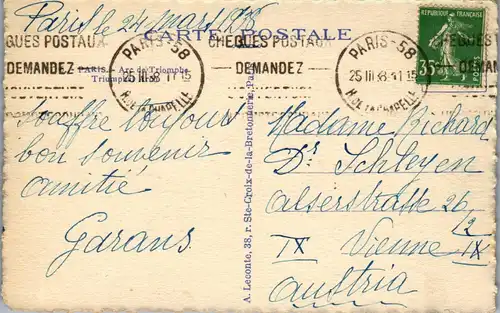 Paris le 24 mars 1938
CARTE POSTALE
CHEQUES POSTAUX
DEMANDEZ
PARIS-58
25 III 38 -11 15
R. DE LA CHAPELLE
CHEQUES POSTAUX
DEMANDEZ
PARIS-58
25 III 38 -11 15
R. DE LA CHAPELLE
REPUBLIQUE FRANÇAISE
35
PARIS. - Arc de Triomphe
Triumphal
A. Leconte, 38, r. Ste-Croix-de-la-Bretonnerie, Paris
bon souvenir
amitié
Garans
Madame Richard
Dr Schleyen
Alserstrasse 26
/2
IX Vienne IX
Austria